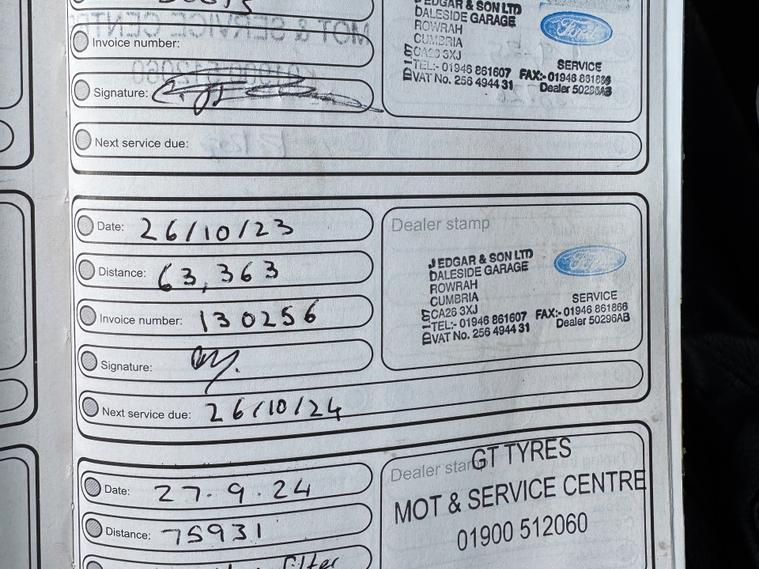 J EDGAR & SON LTD
DALESIDE GARAGE
ROWRAH
CUMBRIA
CA26 3XJ
TEL:- 01946 861607 FAX:- 01946 861866
VAT No. 256 4944 31 Dealer 50296AB
Ford
SERVICE
Invoice number:
Signature:
Next service due:
Date: 26/10/23
Distance: 63,363
Invoice number: 130256
Signature:
Next service due: 26/10/24
Dealer stamp
J EDGAR & SON LTD
DALESIDE GARAGE
ROWRAH
CUMBRIA
CA26 3XJ
TEL:- 01946 861607 FAX:- 01946 861866
VAT No. 256 4944 31 Dealer 50296AB
Ford
SERVICE
Date: 27.9.24
Distance: 75931
filter
Dealer stamp
GT TYRES
MOT & SERVICE CENTRE
01900 512060